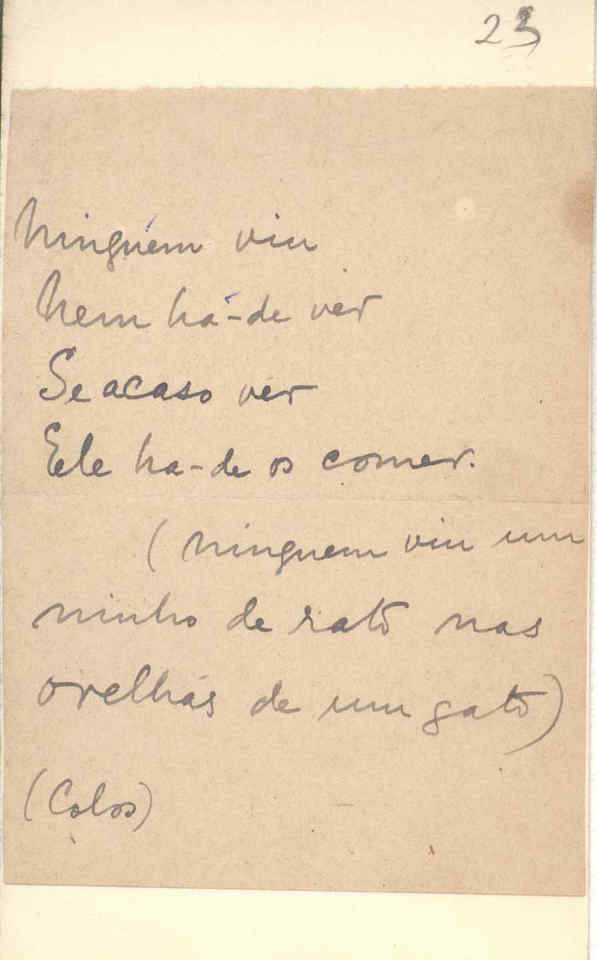 23
Ninguém viu
Nem há-de ver
Se acaso ver
Ele ha-de os comer.
(ninguem viu um
ninho de rato nas
orelhas de um gato)
(Colos)